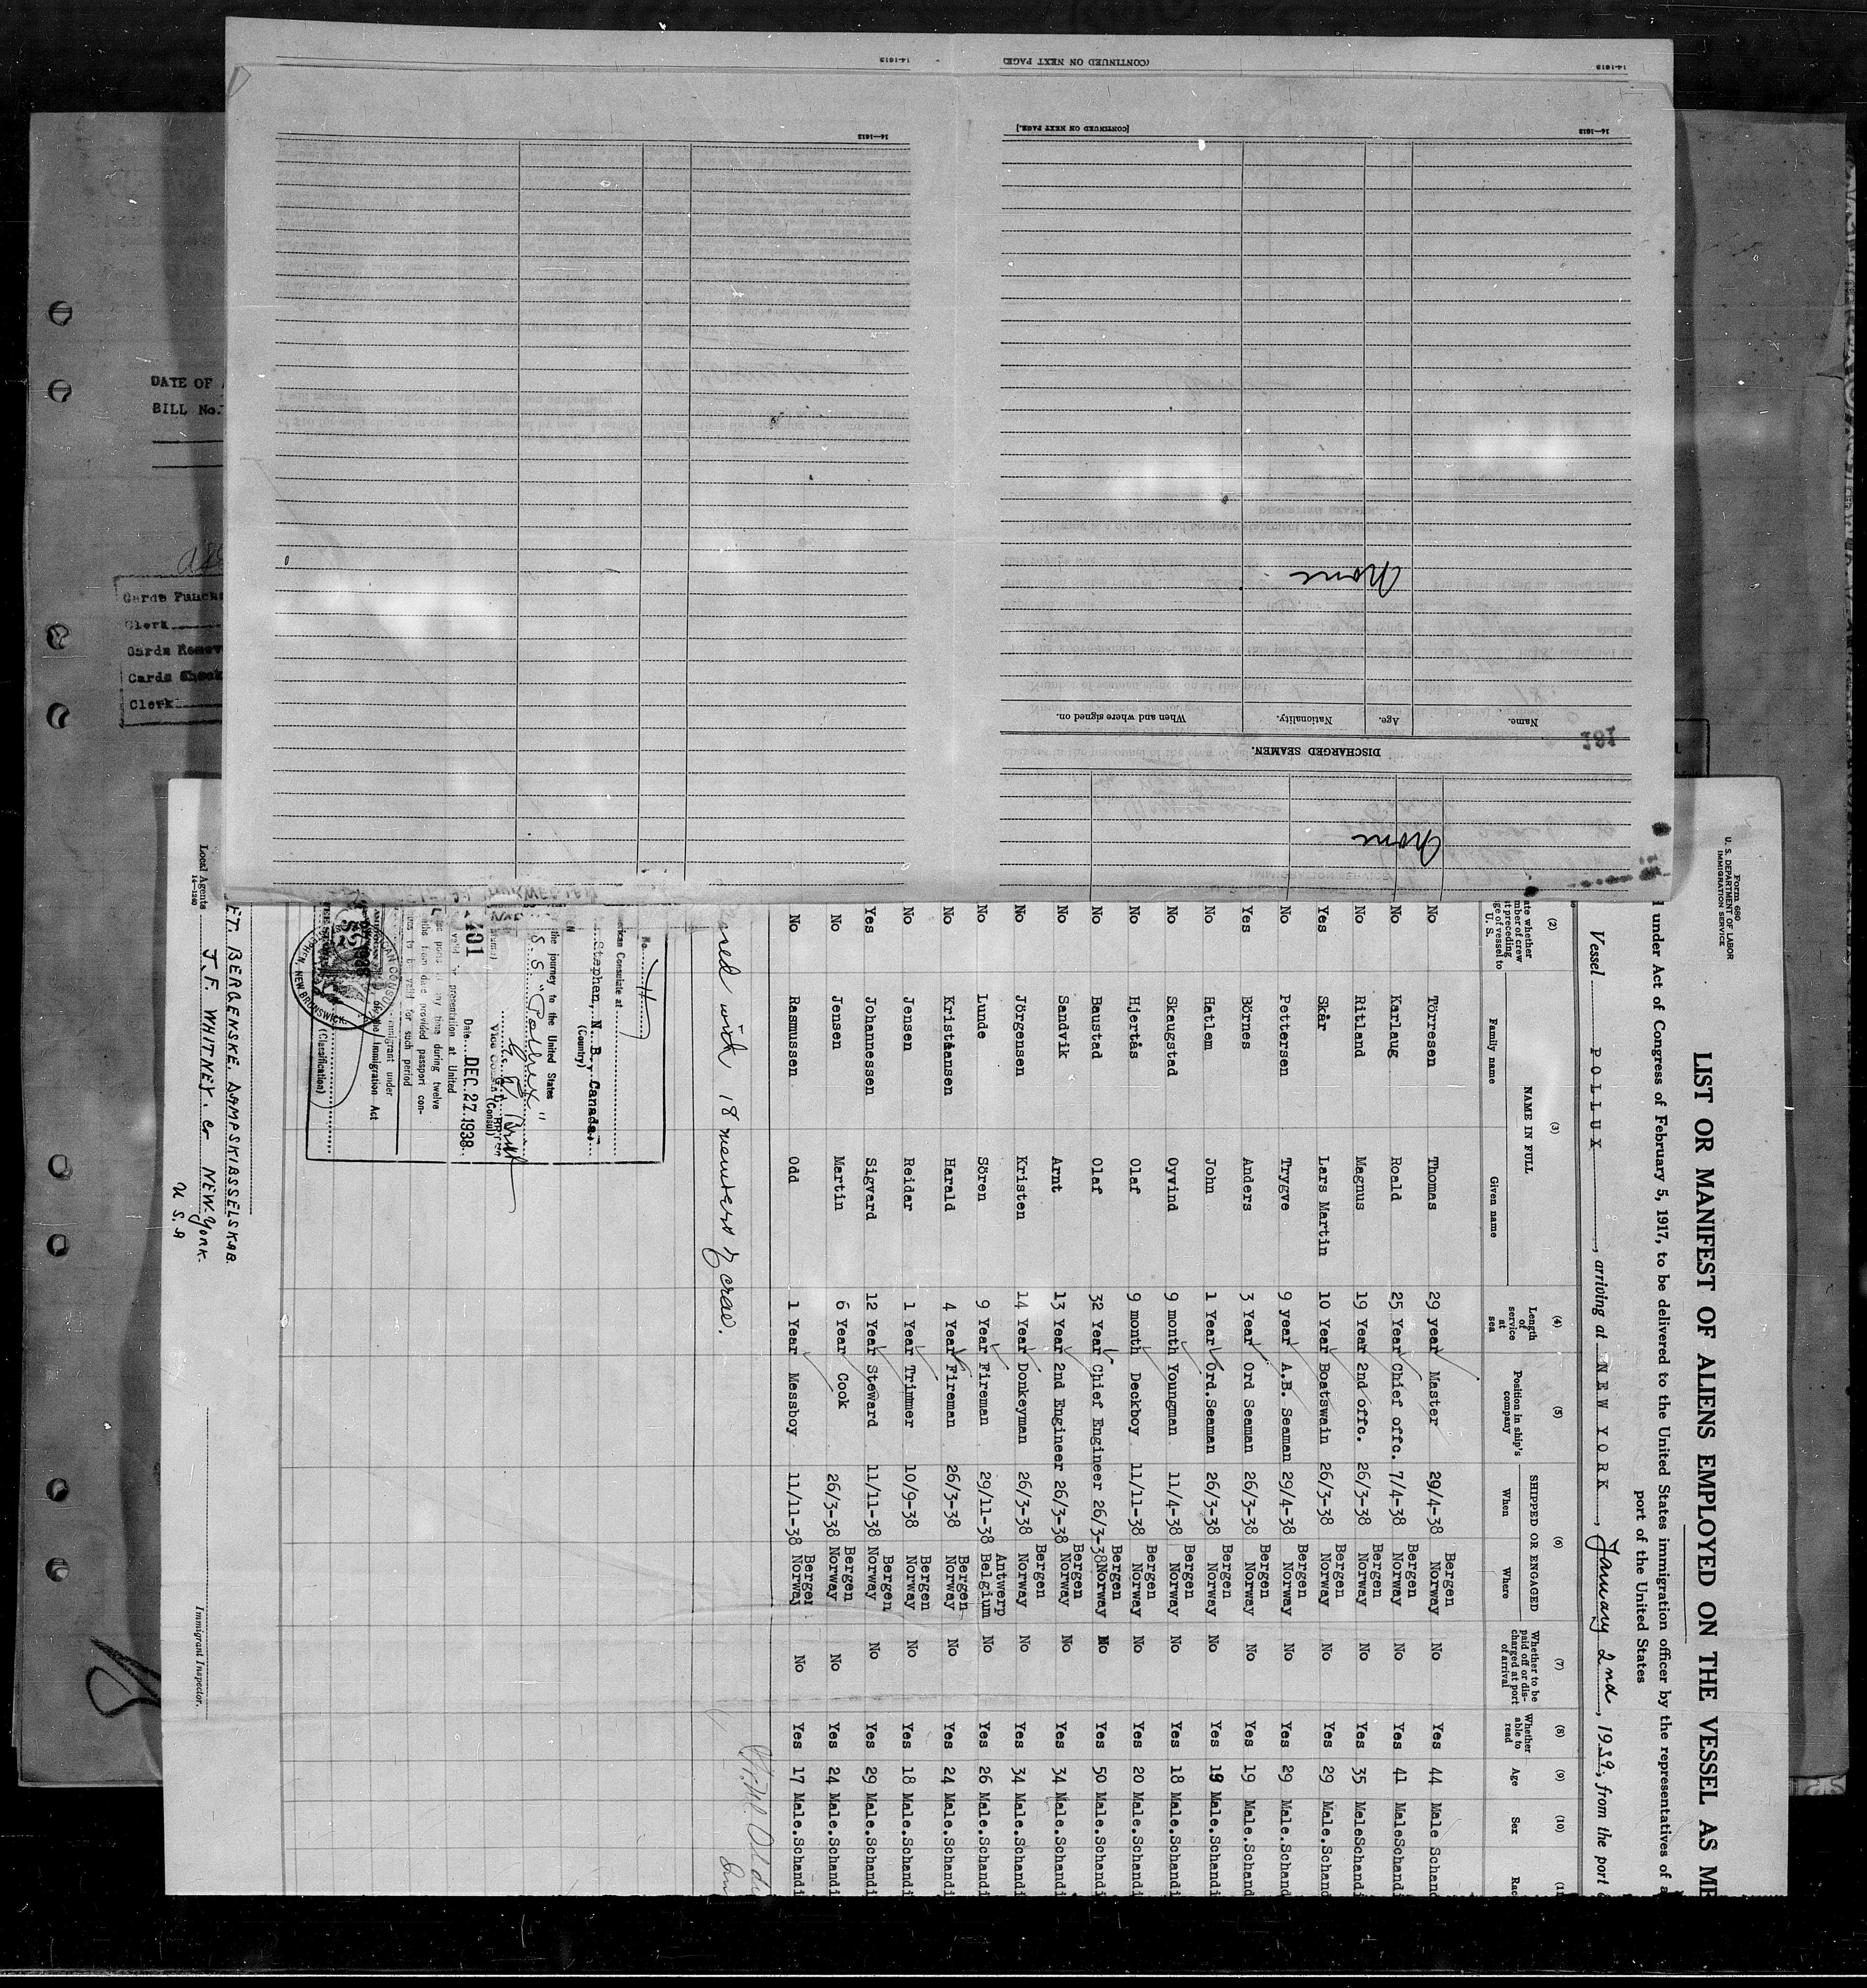 14-1613
(CONTINUED ON NEXT PAGE)
14-1613
14—1613
[CONTINUED ON NEXT PAGE.]
14—1613
None
Name.
Age.
Nationality.
When and where signed on.
181
DISCHARGED SEAMEN.
None
DATE OF
BILL No.
Cards Punch
Clerk
Cards Remov
Cards Check
Clerk
Form 680
U. S. DEPARTMENT OF LABOR
IMMIGRATION SERVICE
LIST OR MANIFEST OF ALIENS EMPLOYED ON THE VESSEL AS ME
under Act of Congress of February 5, 1917, to be delivered to the United States immigration officer by the representatives of a
port of the United States
Vessel POLLUX, arriving at NEW YORK, January 2nd, 1939, from the port
(2) (3) (4) (5) (6) (7) (8) (9) (10) (11
NAME IN FULL
Family name Given name
Length of service at sea
Position in ship's company
SHIPPED OR ENGAGED
When Where
Whether to be paid off or discharged at port of arrival
Whether able to read
Age
Sex
Rac
No Törresen Thomas 29 year Master 29/4-38 Bergen Norway No Yes 44 Male Schand
No Karlaug Roald 25 Year Chief offc. 7/4-38 Bergen Norway No Yes 41 MaleSchandi
No Ritland Magnus 19 Year 2nd offc. 26/3-38 Bergen Norway No Yes 35 MaleSchandi
Yes Skår Lars Martin 10 Year Boatswain 26/3-38 Bergen Norway No Yes 29 Male.Schand
No Pettersen Trygve 9 year A.B. Seaman 29/4-38 Bergen Norway No Yes 29 Male.Schand
Yes Börnes Anders 3 Year Ord Seaman 26/3-38 Bergen Norway No Yes 19 Male.Schand
No Hatlem John 1 Year Ord.Seaman 26/3-38 Bergen Norway No Yes 19 Male.Schandi
No Skaugstad Oyvind 9 month Youngman 11/4-38 Bergen Norway No Yes 18 Male.Schandi
No Hjertås Olaf 9 month Deckboy 11/11-38 Bergen Norway No Yes 20 Male.Schandi
No Baustad Olaf 32 Year Chief Engineer 26/3-38 Bergen Norway No Yes 50 Male.Schandi
No Sandvik Arnt 13 Year 2nd Engineer 26/3-38 Bergen Norway No Yes 34 Male.Schandi
No Jörgensen Kristen 14 Year Donkeyman 26/3-38 Bergen Norway No Yes 34 Male.Schandi
No Lunde Sören 9 Year Fireman 29/11-38 Antwerp Belgium No Yes 26 Male.Schandi
No Kristiansen Harald 4 Year Fireman 26/3-38 Bergen Norway No Yes 24 Male.Schandi
No Jensen Reidar 1 Year Trimmer 10/9-38 Bergen Norway No Yes 18 Male.Schandi
Yes Johannessen Sigvard 12 Year Steward 11/11-38 Bergen Norway No Yes 29 Male.Schandi
No Jensen Martin 6 Year Cook 26/3-38 Bergen Norway No Yes 24 Male.Schandi
No Rasmussen Odd 1 Year Messboy 11/11-38 Bergen Norway No Yes 17 Male.Schandi
with 18 members of crew.
No.
rican Consulate at
Stephen, N. B., Canada.
(Country)
the journey to the United States
S. S. "Pollux"
(Consul)
Date DEC 27 1938
presentation at United
any time during twelve
from date provided passport con-
to be valid for such period
migrant under
Immigration Act
(Classification)
NEW BRUNSWICK.
ET. BERGENSKE. DAMPSKIBSSELSKAB.
Local Agents J. F. WHITNEY. Co NEW-York.
U S. A
14—1240
Immigrant Inspector.